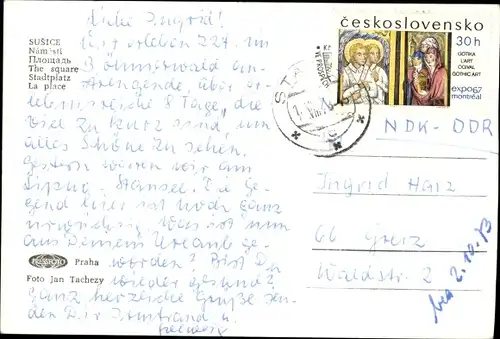 SUŠICE
Náměstí
Площадь
The square
Stadtplatz
La place
Liebe Ingrid!
Wir erleben z.Zt. im
Böhmerwald an-
strengende aber er-
lebnisreiche 8 Tage, die
viel zu kurz sind, um
alles Schöne zu sehen.
Gestern waren wir am
Lipno-Stausee. Die Ge-
gend hier ist noch ganz
urwüchsig. Was ist nun
aus Deinem Urlaub ge-
worden? Bist Du
wieder gesund?
Ganz herzliche Grüße sen-
den Dir Irmtraud u.
PRESSFOTO
Praha
Foto Jan Tachezy
československo
30h
GOTIKA
L'ART
GOTHIC ART
expo67
montréal
NDR-DDR
Ingrid Harz
66 Greiz
Waldstr. 2
bea 2.10.73